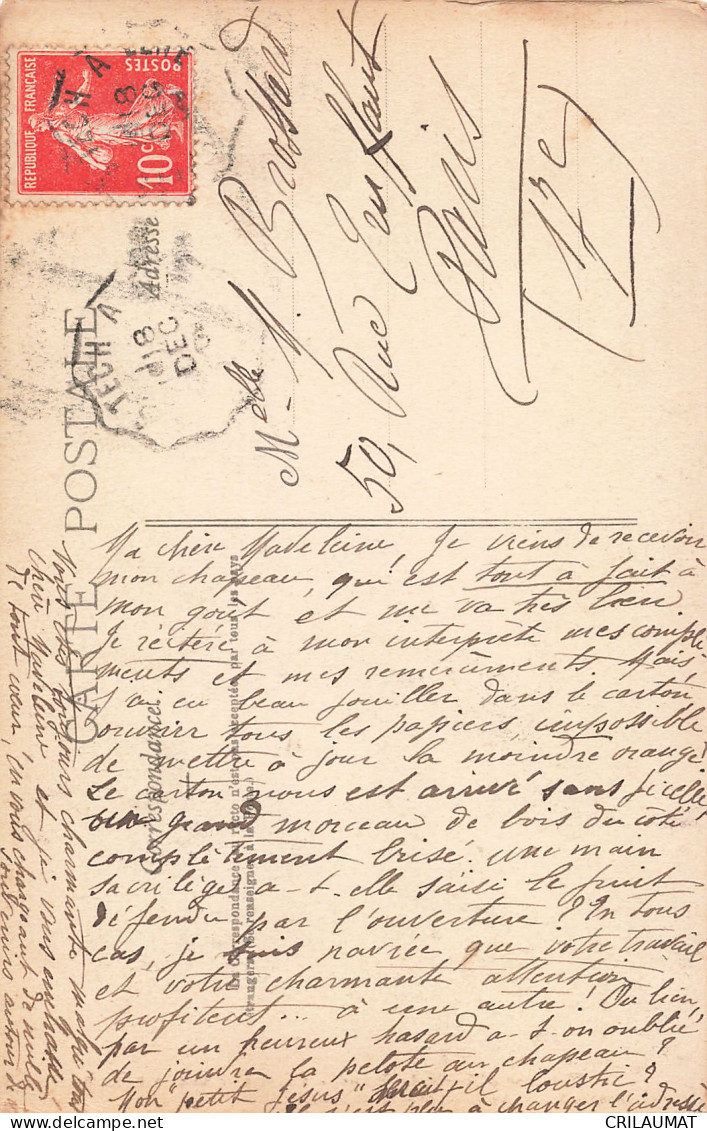 REPUBLIQUE FRANÇAISE
POSTES
10 c
18
DEC
CARTE POSTALE
Adresse
Correspondance
Melle M. Brossard
50, Rue
Paris
17e
Ma chère Madeleine, Je viens de recevoir
mon chapeau, qui est tout à fait à
mon goût et me va très bien.
Je réitère à mon interprète mes compli
ments et mes remerciements. Mais,
j'ai eu beau fouiller dans le carton
ouvrir tous les papiers impossible
de mettre à jour la moindre orange
Le carton nous est arrivé sans ficelle
un grand morceau de bois du côté
complètement brisé. Une main
sacrilège a-t-elle saisi le fruit
défendu par l'ouverture? En tous
cas, je suis navrée que votre travail
et votre charmante attention
profitent... à une autre! Ou bien,
par un heureux hasard a-t-on oublié
de joindre la pelote au chapeau?
Mon "petit Jésus" serait-il loustic?
à changer l'adresse
Vous êtes toujours charmante
chère Madeleine et je vous embrasse
de tout cœur, en vous chargeant de mille
CRILAUMAT